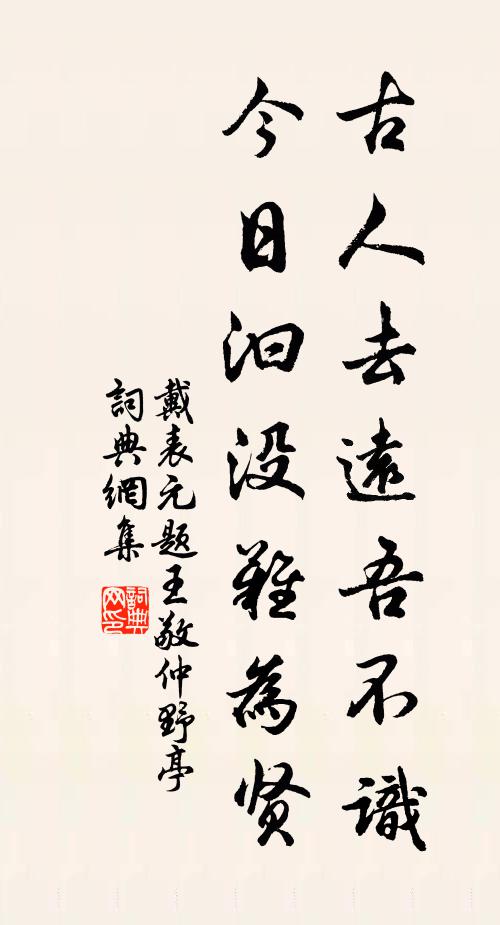 古人去遠吾不識
今日汩没難為贤
戴表元題王敬仲野亭
詞典網集
詞典网印